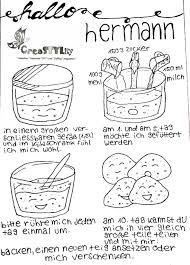 hallo
hermann
CreaSTYLity
150g zucker
100g mehl
150ml milch
in einem großen ver-
schließbaren gefäß (1,5l)
und im kühlschrank fühl
ich mich wohl.
am 1. und am 5. tag
möchte ich gefüttert
werden
bitte rühre mich jeden
tag einmal um.
am 10. tag kannst du
mich in vier gleich
große teile teilen
und mit mir:
backen, einen neuen teig ansetzen oder
mich verschenken.